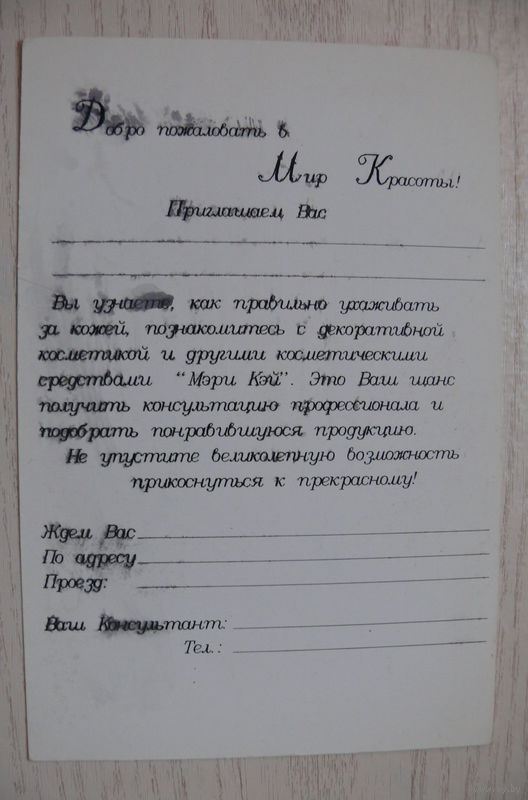 Добро пожаловать в
Мир Красоты!
Приглашаем Вас
Вы узнаете, как правильно ухаживать
за кожей, познакомитесь с декоративной
косметикой и другими косметическими
средствами "Мэри Кэй". Это Ваш шанс
получить консультацию профессионала и
подобрать понравившуюся продукцию.
Не упустите великолепную возможность
прикоснуться к прекрасному!
Ждем Вас
По адресу
Проезд:
Ваш Консультант:
Тел.: